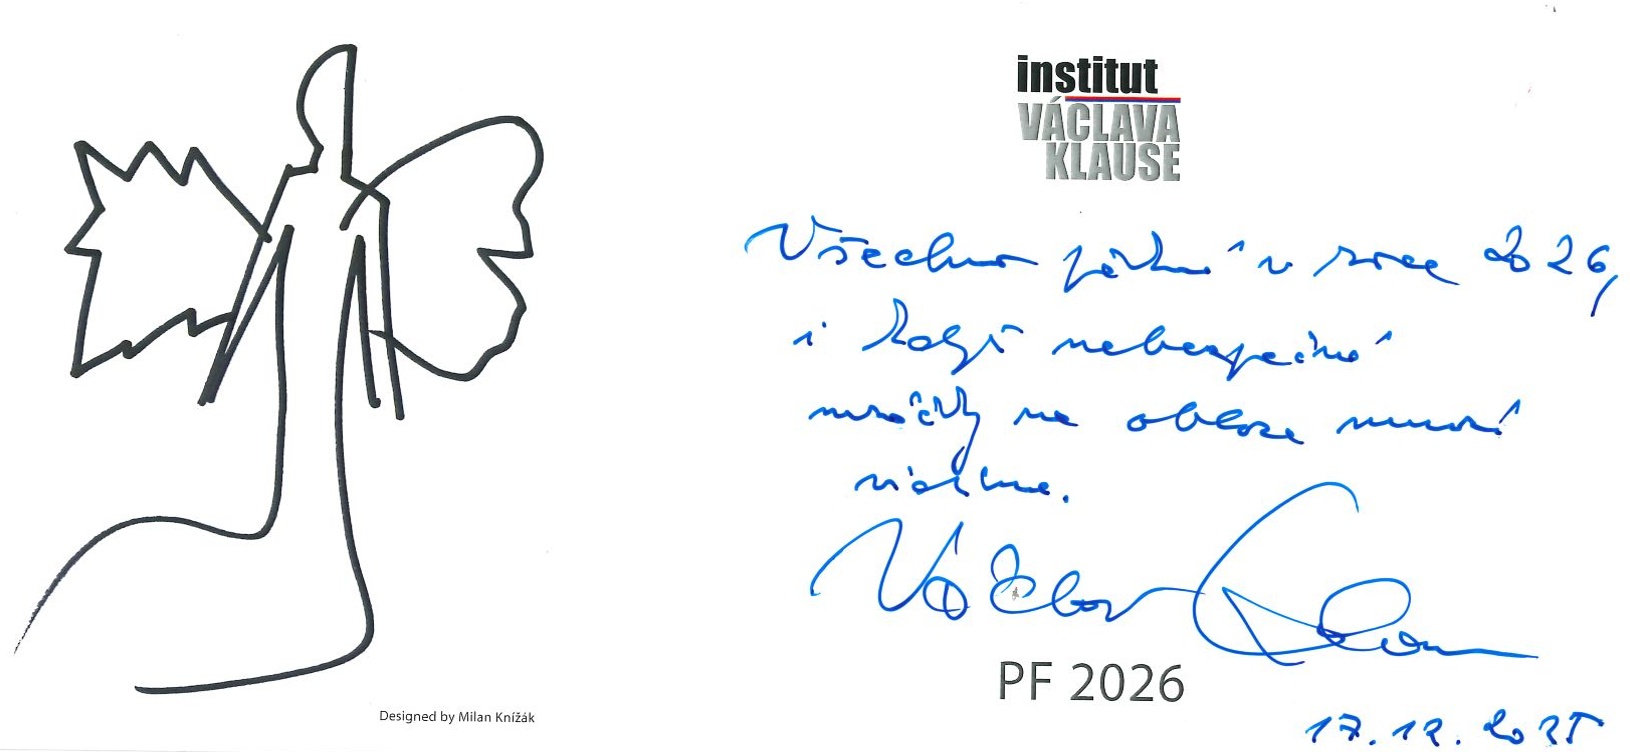 institut
VÁCLAVA
KLAUSE
Všechno pěkné v roce 2026,
i když nebezpečné
mráčky na obloze musí
vidíme.
Václav Klaus
PF 2026
17.12.2025
Designed by Milan Knížák